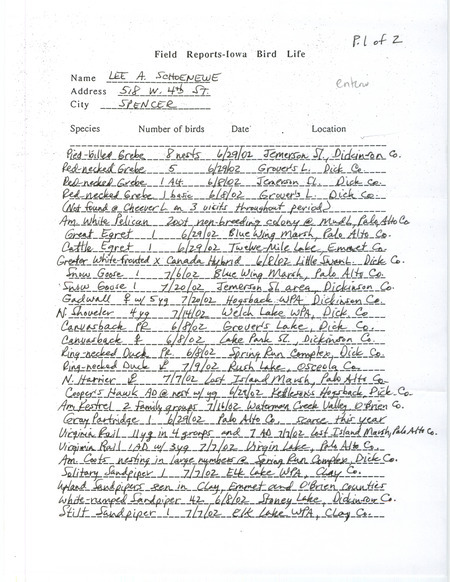 P. 1 of 2
Field Reports-Iowa Bird Life
Name LEE A. SCHOENEWE
Address 518 W. 4th ST.
City SPENCER
Species Number of birds Date Location
Pied-billed Grebe 8 nests 6/29/02 Jemerson Sl., Dickinson Co.
Red-necked Grebe 5 6/29/02 Grover's L. Dick Co
Red-necked Grebe 1 Alt 6/8/02 Jemerson Sl. Dick Co.
Red-necked Grebe 1 basic 6/8/02 Grover's L. Dick Co.
(Not found @ Cheever L on 3 visits throughout period)
Am. White Pelican 200+ non-breeding colony @ Mud L, Palo Alto Co
Great Egret 1 6/29/02 Blue Wing Marsh, Palo Alto Co.
Cattle Egret 1 6/29/02 Twelve Mile Lake, Emmet Co.
Greater White-fronted x Canada Hybrid 6/8/02 Little Swan L. Dick Co
Snow Goose 1 7/6/02 Blue Wing Marsh, Palo Alto Co.
Snow Goose 1 7/20/02 Jemerson Sl area, Dickinson Co.
Gadwall ♀ w/ 5 yg 7/20/02 Hogsback WPA Dickinson Co.
N. Shoveler 4 yg 7/14/02 Welch Lake WPA, Dick. Co
Canvasback PR 6/8/02 Grover's Lake, Dick. Co.
Canvasback ♀ 6/8/02 Lake Park Sl. Dickinson Co.
Ring-necked Duck PR 6/8/02 Spring Run Complex, Dick. Co.
Ring-necked Duck ♀ 7/9/02 Rush Lake, Osceola Co.
N. Harrier ♀ 7/7/02 Lost Island Marsh, Palo Alto Co.
Cooper's Hawk AD @ nest w/ yg 6/29/02 Kettleson's Hogsback, Dick. Co.
Am Kestrel 2 family groups 7/16/02 Waterman Creek Valley O'Brien Co.
Gray Partridge 1 6/29/02 Palo Alto Co. scarce this year
Virginia Rail 11 yg in 4 groups and 7 AD 7/7/02 Lost Island Marsh, Palo Alto Co.
Virginia Rail 1 AD w/ 3 yg 7/7/02 Virgin Lake, Palo Alto Co.
Am. Coots nesting in large numbers @ Spring Run Complex, Dick Co.
Solitary Sandpiper 1 7/7/02 Elk Lake WPA, Clay Co.
Upland Sandpipers seen in Clay, Emmet and O'Brien counties
White-rumped Sandpiper 42 6/8/02 Stoney Lake, Dickinson Co.
Stilt Sandpiper 1 7/7/02 Elk Lake WPA, Clay Co.